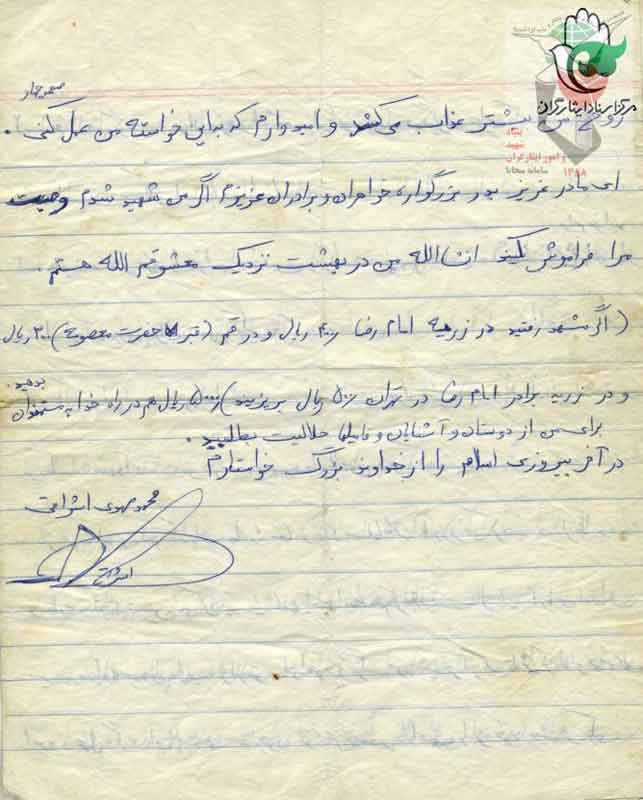 صفحه چهار
مرکز اسناد ایثارگران
بنیاد
شهید
و امور ایثارگران
۱۳۸۸ سامانه سجایا
روح من بیشتر عذاب می‌کشد و امیدوارم که به این خواسته من عمل کنی.
ای مادر عزیز پدر بزرگوار، خواهران و برادران عزیزم اگر من شهید شدم وصیت
مرا فراموش نکنید انشاالله من در بهشت نزدیک معشوقم الله هستم.
(اگر مشهد رفتید در زریه امام رضا ریال و در قم (قبر حضرت معصومه) ۳۰۰ ریال
و در زریه برادر امام رضا در تهران ۵۰۰ ریال بریزید) ۵۰۰۰ ریال هم در راه خدا به مستحقان بدهید.
برای من از دوستان و آشنایان و فامیلها حلالیت بطلبید.
در آخر پیروزی اسلام را از خداوند بزرگ خواستارم
محمد مهدی اشراقی